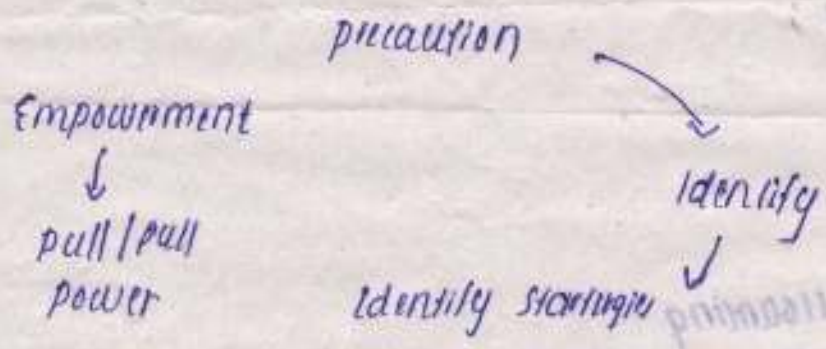 precaution
Empowerment
↓
pull/pull
power
Identify
Identify startegies